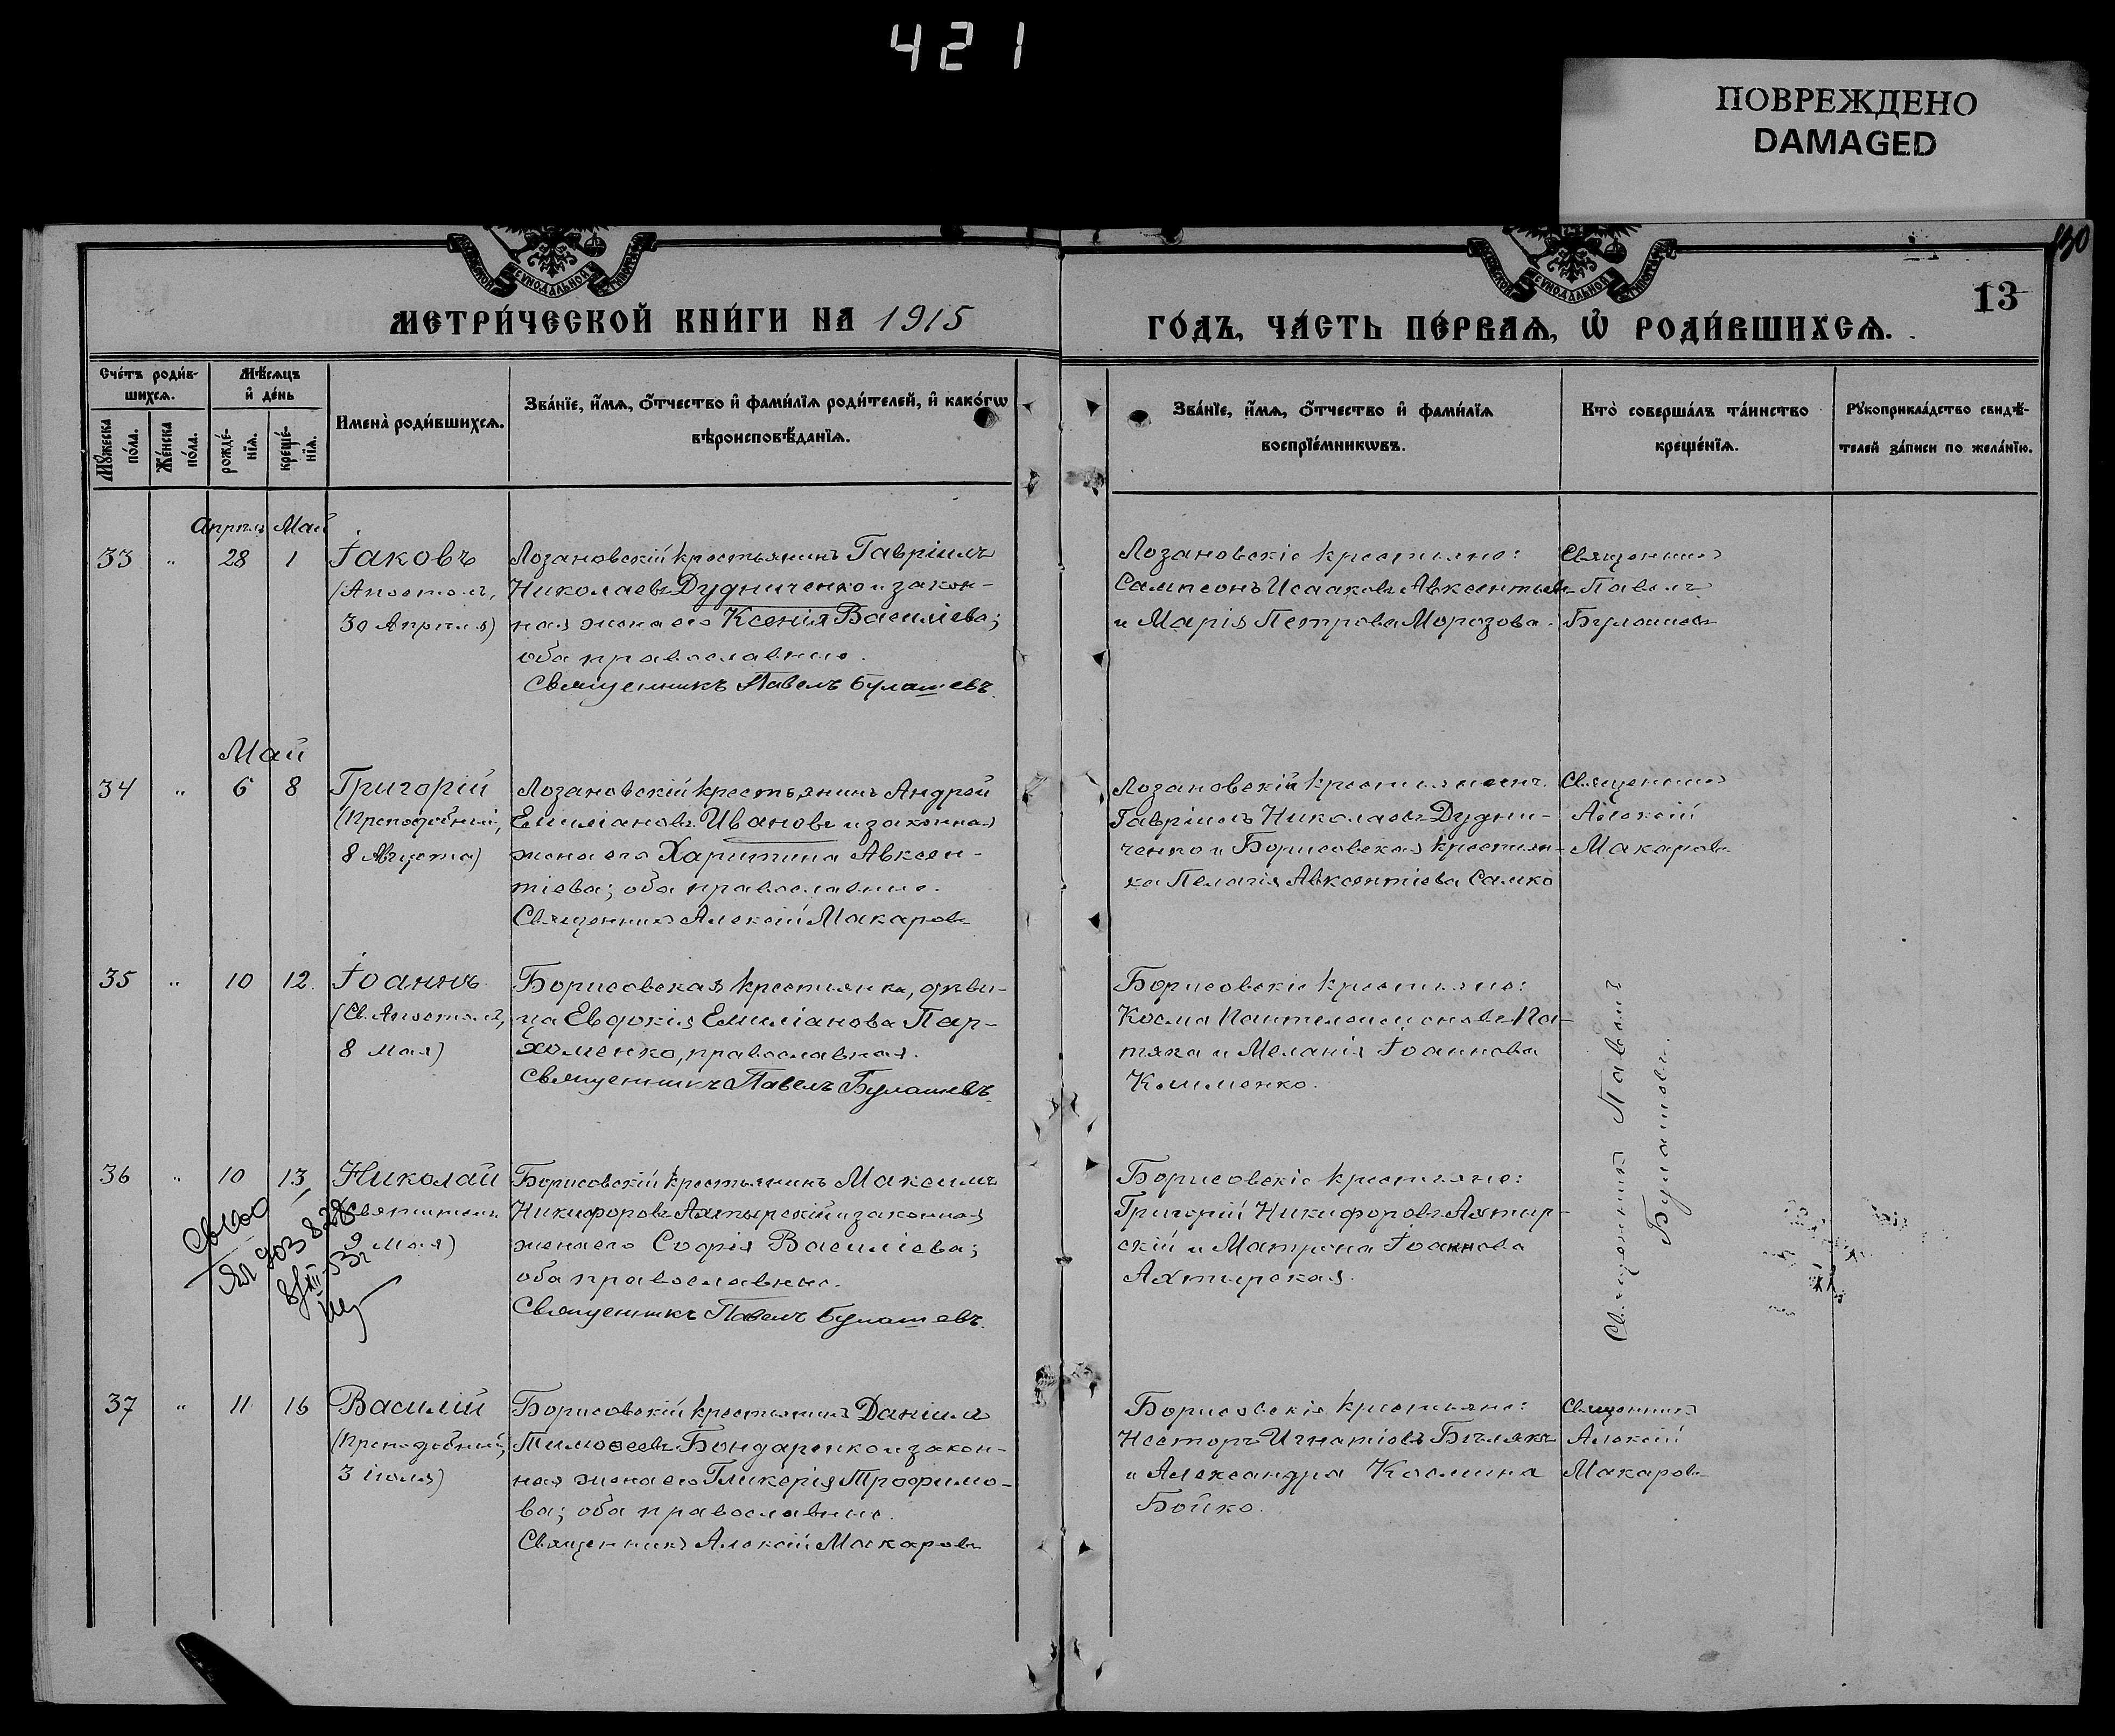 421
ПОВРЕЖДЕНО
DAMAGED
130
13
МЕТРИ́ЧЕСКОЙ КНИ́ГИ НА 1915
ГО́ДЪ, ЧА́СТЬ ПЕ́РВАѦ, Ѡ҆ РОДИ́ВШИХСѦ.
Сче́тъ роди́в-
шихсѧ.
Мꙋ́жеска
по́ла.
Же́нска
по́ла.
Мѣ́сѧцъ
и҆ де́нь
рожде́-
нїѧ.
креще́-
нїѧ.
Имена̀ роди́вшихсѧ.
Зва́нїе, и҆́мѧ, ѻ҆́тчество и҆ фами́лїѧ роди́телей, и҆ како́гѡ
вѣроисповѣ́данїѧ.
Зва́нїе, и҆́мѧ, ѻ҆́тчество и҆ фами́лїѧ
воспрїе́мникѡвъ.
Кто̀ соверша́лъ та́инство
креще́нїѧ.
Рꙋкоприкла́дство свидѣ́-
телей за́писи по жела́нїю.
Апрѣль Май
33 " 28 1
Іаковъ
(Апостолъ,
30 Апрѣля)
Лозановскій крестьянинъ Гавріилъ
Николаевъ Дудниченко и закон-
ная жена его Ксенія Василіева;
оба православные.
Священникъ Павелъ Булашевъ.
Лозановскіе крестьяне:
Сампсонъ Исааковъ Авксентьевъ
и Марія Петрова Морозова.
Священникъ
Павелъ
Булашевъ
Май
34 " 6 8
Григорій
(Преподобный,
8 Августа)
Лозановскій крестьянинъ Андрей
Емиліановъ Ивановъ и законная
жена его Харитина Авксен-
тіева; оба православные.
Священникъ Алексій Макаровъ
Лозановскій крестьянинъ
Гавріилъ Николаевъ Дудни-
ченко и Борисовская крестьян-
ка Пелагія Авксентіева Самко
Священникъ
Алексій
Макаровъ
35 " 10 12.
Іоаннъ
(Св. Апостолъ,
8 Мая)
Борисовская крестьянка, дѣви-
ца Евдокія Емиліанова Пар-
хоменко, православная.
Священникъ Павелъ Булашевъ.
Борисовскіе крестьяне:
Косма Пантелеимоновъ Па-
тяка и Меланія Іоаннова
Клименко.
Священникъ Павелъ
Булашевъ.
36 " 10 13
Николай
(Святитель
9 Мая)
Борисовскій крестьянинъ Максимъ
Никифоровъ Ахтырскій и законная
жена его Софія Василіева;
оба православные.
Священникъ Павелъ Булашевъ.
Борисовскіе крестьяне:
Григорій Никифоровъ Ахтыр-
скій и Матрона Іоаннова
Ахтырская.
37 " 11 16
Василій
(Преподобный,
3 Іюля)
Борисовскій крестьянинъ Даніилъ
Тимоѳеевъ Бондаренко и закон-
ная жена его Гликерія Трофимо-
ва; оба православные.
Священникъ Алексій Макаровъ
Борисовскіе крестьяне:
Несторъ Игнатіевъ Бѣлякъ
и Александра Космина
Бойко.
Священникъ
Алексій
Макаровъ